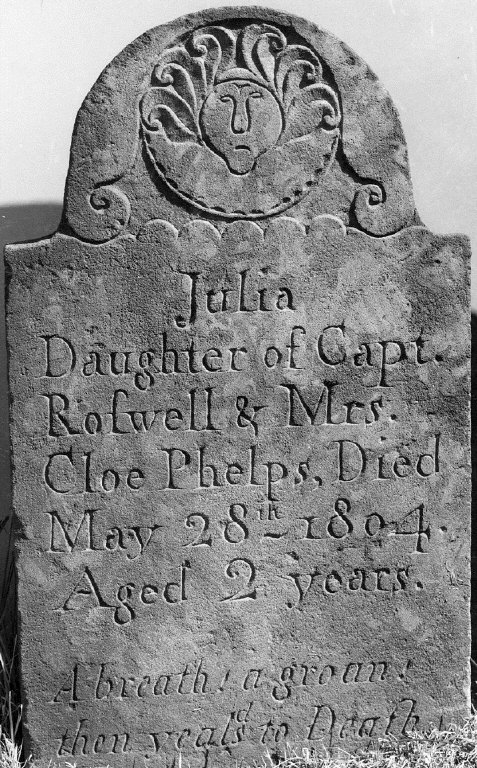 Julia
Daughter of Capt.
Roſwell & Mrs.
Cloe Phelps, Died
May 28th 1804.
Aged 2 years.
A breath! a groan!
then yeal'sd to Death!